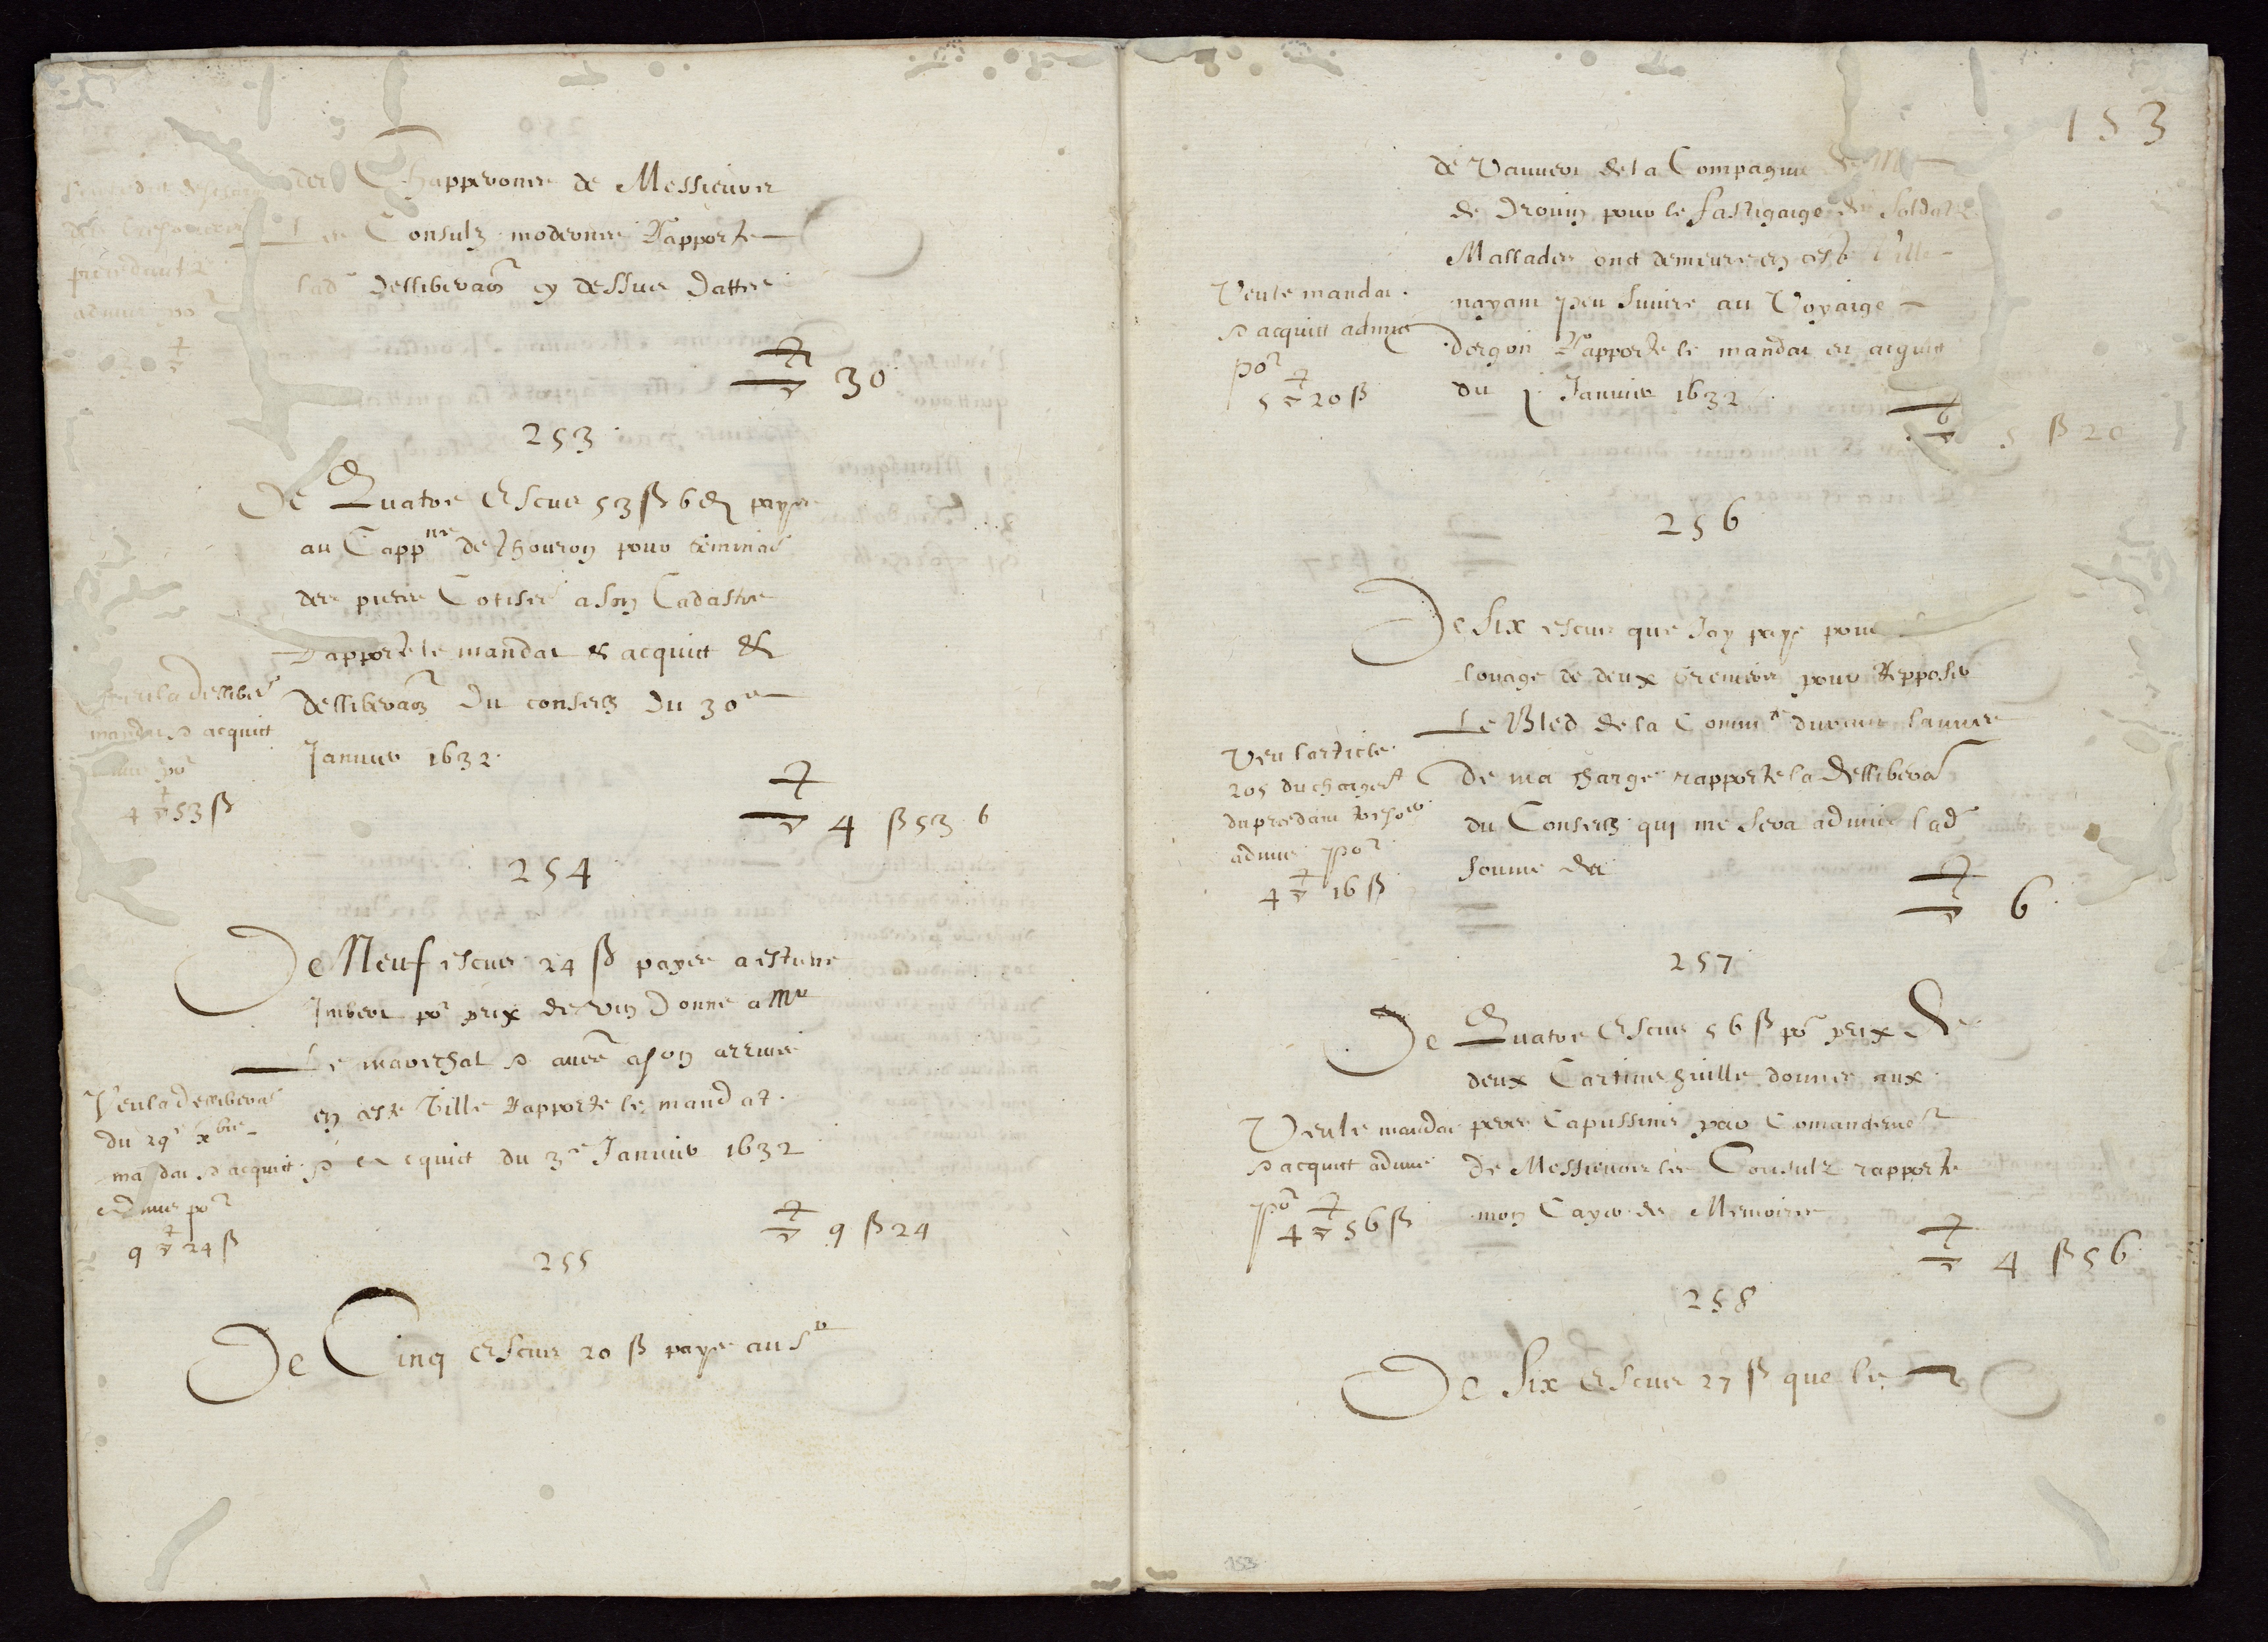 des Chapperons de Messieurs
les Consulz modernes Rapporte
lad dellibera͠on cy dessus dattée
30
253
De Quatre Escus 53 ß 6 d payes
au Cappne de Thouron pour
des pieces Cotisés a son Cadastre
Rapporte le mandat & acquict &
dellibera͠on du conseilh du 30e
Januier 1632
Veu la dellibera͠
mandat & acquict
admis po͠
4 53 ß
4 ß 53 6
254
De Neuf escus 24 ß payes a estienne
Imbert po͠ prix de vin Donné a Mr
Le mareschal & a son arriuée
en ceste Ville Rapporte le mandat
& acquict du 3e Januier 1632
Veu la dellibera͠
du 29e xbre
mandat & acquict
admis po͠
9 24 ß
9 ß 24
255
De Cinq Escus 20 ß payés au Sr
153
de Vauuert de la Compagnie
de Drouin pour le fastigaige des soldatz
Mallades ont demeuré en ceste Ville
nayant peu suiure au Voyaige
dergon Rapporte le mandat et acquict
du Januier 1632
Veu le mandat
& acquict admis
po͠
5 20 ß
5 ß 20
256
De Six escus que Jay payé pour
louage de deux greniers pour Repposer
Le Bled de la Commté durant lannée
de ma charge rapporte la dellibera͠
du Conseilh qui me sera admise lad
somme de
Veu larticle
205 du chargemt
du precedant tresorer
admis po͠
4 16 ß
6
257
De Quatre Escus 56 ß po͠ prix de
deux donnés aux
peres Capussins par Comandeme͠
de Messieurs les Consulz rapporte
mon Cayer de Memoires
Veu le mandat
& acquict admis
po͠
4 56 ß
4 ß 56
258
De Six Escus 27 ß que le
153